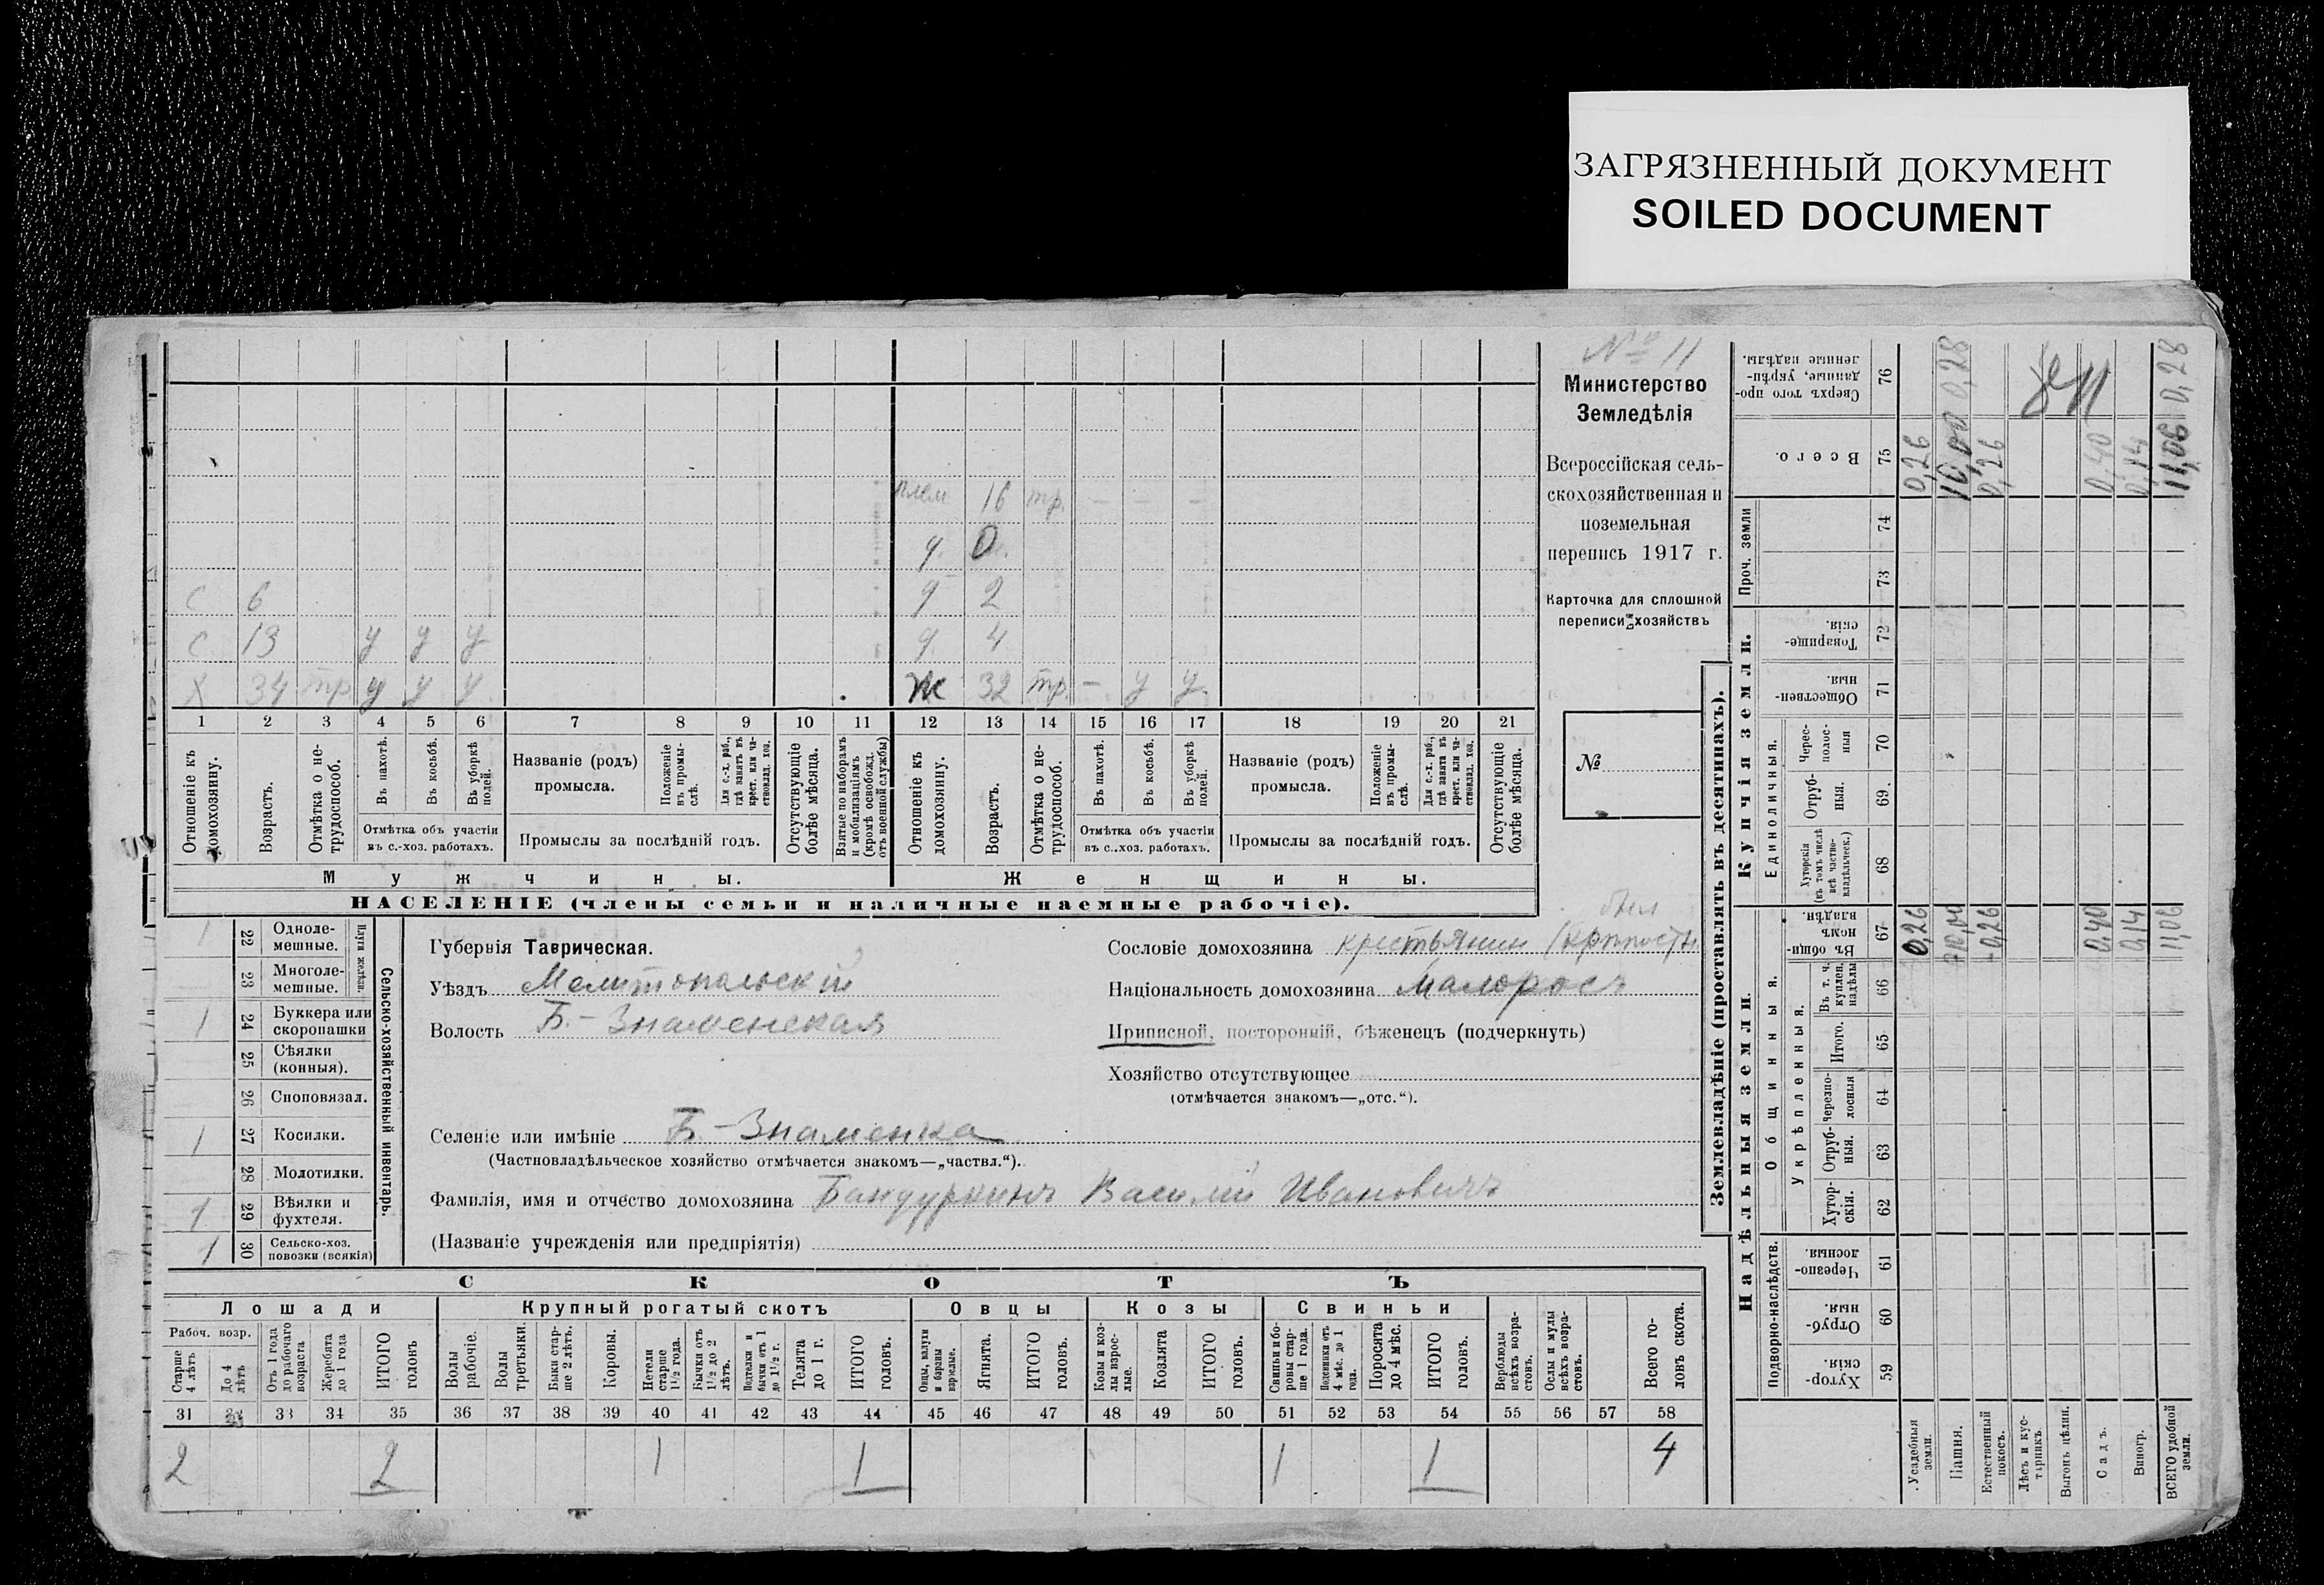 ЗАГРЯЗНЕННЫЙ ДОКУМЕНТ
SOILED DOCUMENT
№ 11
Министерство
Земледѣлія
Всероссійская сель-
скохозяйственная и
поземельная
перепись 1917 г.
Карточка для сплошной
переписи хозяйствъ
№
плем 16 тр. – – –
д. 0.
д 2
д. 4
Ж 32 тр. – у у.
С 6
С 13 у у у
Х 34 тр у у у
1 2 3 4 5 6 7 8 9 10 11 12 13 14 15 16 17 18 19 20 21
Отношеніе къ домохозяину.
Возрастъ.
Отмѣтка о не-трудоспособ.
Въ пахотѣ.
Въ косьбѣ.
Въ уборкѣ полей.
Отмѣтка объ участіи
въ с.-хоз. работахъ.
Названіе (родъ)
промысла.
Положеніе въ промы-слѣ.
Для с.-х. раб., гдѣ занятъ въ крест. или ча-стновлад. хоз.
Промыслы за послѣдній годъ.
Отсутствующіе болѣе мѣсяца.
Взятые по наборамъ и мобилизаціямъ (кромѣ освобожд. отъ военной службы)
Отношеніе къ домохозяину.
Возрастъ.
Отмѣтка о не-трудоспособ.
Въ пахотѣ.
Въ косьбѣ.
Въ уборкѣ полей.
Отмѣтка объ участіи
въ с..хоз. работахъ.
Названіе (родъ)
промысла.
Положеніе въ промы-слѣ.
Для с.-х. раб., гдѣ занята въ крест. или ча-стновлад. хоз.
Промыслы за послѣдній годъ.
Отсутствующіе болѣе мѣсяца.
Мужчины. Женщины.
НАСЕЛЕНІЕ (члены семьи и наличные наемные рабочіе).
1 22 Одноле-мешные.
23 Многоле-мешные.
Плуги желѣзн.
1 24 Буккера или скоропашки
25 Сѣялки (конныя).
26 Сноповязал.
1 27 Косилки.
28 Молотилки.
1 29 Вѣялки и фухтеля.
1 30 Сельско-хоз. повозки (всякія)
Сельско-хозяйственный инвентарь.
Губернія Таврическая.
Уѣздъ Мелитопольскій
Волость Б.-Знаменская
Селеніе или имѣніе Б.-Знаменка
(Частновладѣльческое хозяйство отмѣчается знакомъ—„частвл.“).
Фамилія, имя и отчество домохозяина Бандуркинъ Василій Ивановичъ
(Названіе учрежденія или предпріятія)
Сословіе домохозяина крестьянин
Національность домохозяина Малоросъ
Приписной, посторонній, бѣженецъ (подчеркнуть)
Хозяйство отсутствующее
(отмѣчается знакомъ—„отс.“).
СКОТЪ
Лошади Крупный рогатый скотъ Овцы Козы Свиньи
Рабоч. возр.
Старше 4 лѣтъ
До 4 лѣтъ
Отъ 1 года до рабочаго возраста
Жеребята до 1 года
ИТОГО головъ
Волы рабочіе.
Волы третьяки.
Быки стар-ше 2 лѣтъ.
Коровы.
Нетели старше 1½ года.
Бычки отъ 1½ до 2 лѣтъ.
Подтелки и бычки отъ 1 до 1½ г.
Телята до 1 г.
ИТОГО головъ.
Овцы, валухи и бараны взрослые.
Ягнята.
ИТОГО головъ.
Козы и коз-лы взрос-лые.
Козлята
ИТОГО головъ.
Свиньи и бо-ровы стар-ше 1 года.
Подсвинки отъ 4 мѣс. до 1 года.
Поросята до 4 мѣс.
ИТОГО головъ.
Верблюды всѣхъ возра-стовъ.
Ослы и мулы всѣхъ возра-стовъ.
Всего го-ловъ скота.
31 32 33 34 35 36 37 38 39 40 41 42 43 44 45 46 47 48 49 50 51 52 53 54 55 56 57 58
2 2 1 1 1 1 4
Землевладѣніе (проставлять въ десятинахъ).
Надѣльныя земли. Купчія земли. Проч. земли
Подворно-наслѣдств. Общинныя. Единоличныя.
Укрѣпленныя.
Хутор-скія. 59
Отруб-ныя. 60
Черезпо-лосныя. 61
Хутор-скія. 62
Отруб-ныя. 63
Черезпо-лосныя 64
Итого. 65
Въ т. ч. куплен. надѣлы 66
Въ общи-номъ владѣн. 67
Хуторскія (въ томъ числѣ всѣ частно-владѣльческ.) 68
Отруб-ныя. 69.
Черес-полос-ныя 70
Обществен-ныя. 71
Товарище-скія. 72
73
74
Всего. 75
Сверхъ того про-данные, укрѣп-ленные надѣлы. 76
Усадебныя земли. 0,26 0,26
Пашня. 10,00 10,00 0,28
Естественный покосъ. 0,26 0,26
Лѣсъ и кус-тарникъ.
Выгонъ цѣлин.
Садъ. 0,40 0,40
Виногр. 0,14 0,14
ВСЕГО удобной земли. 11,06 11,06 0,28